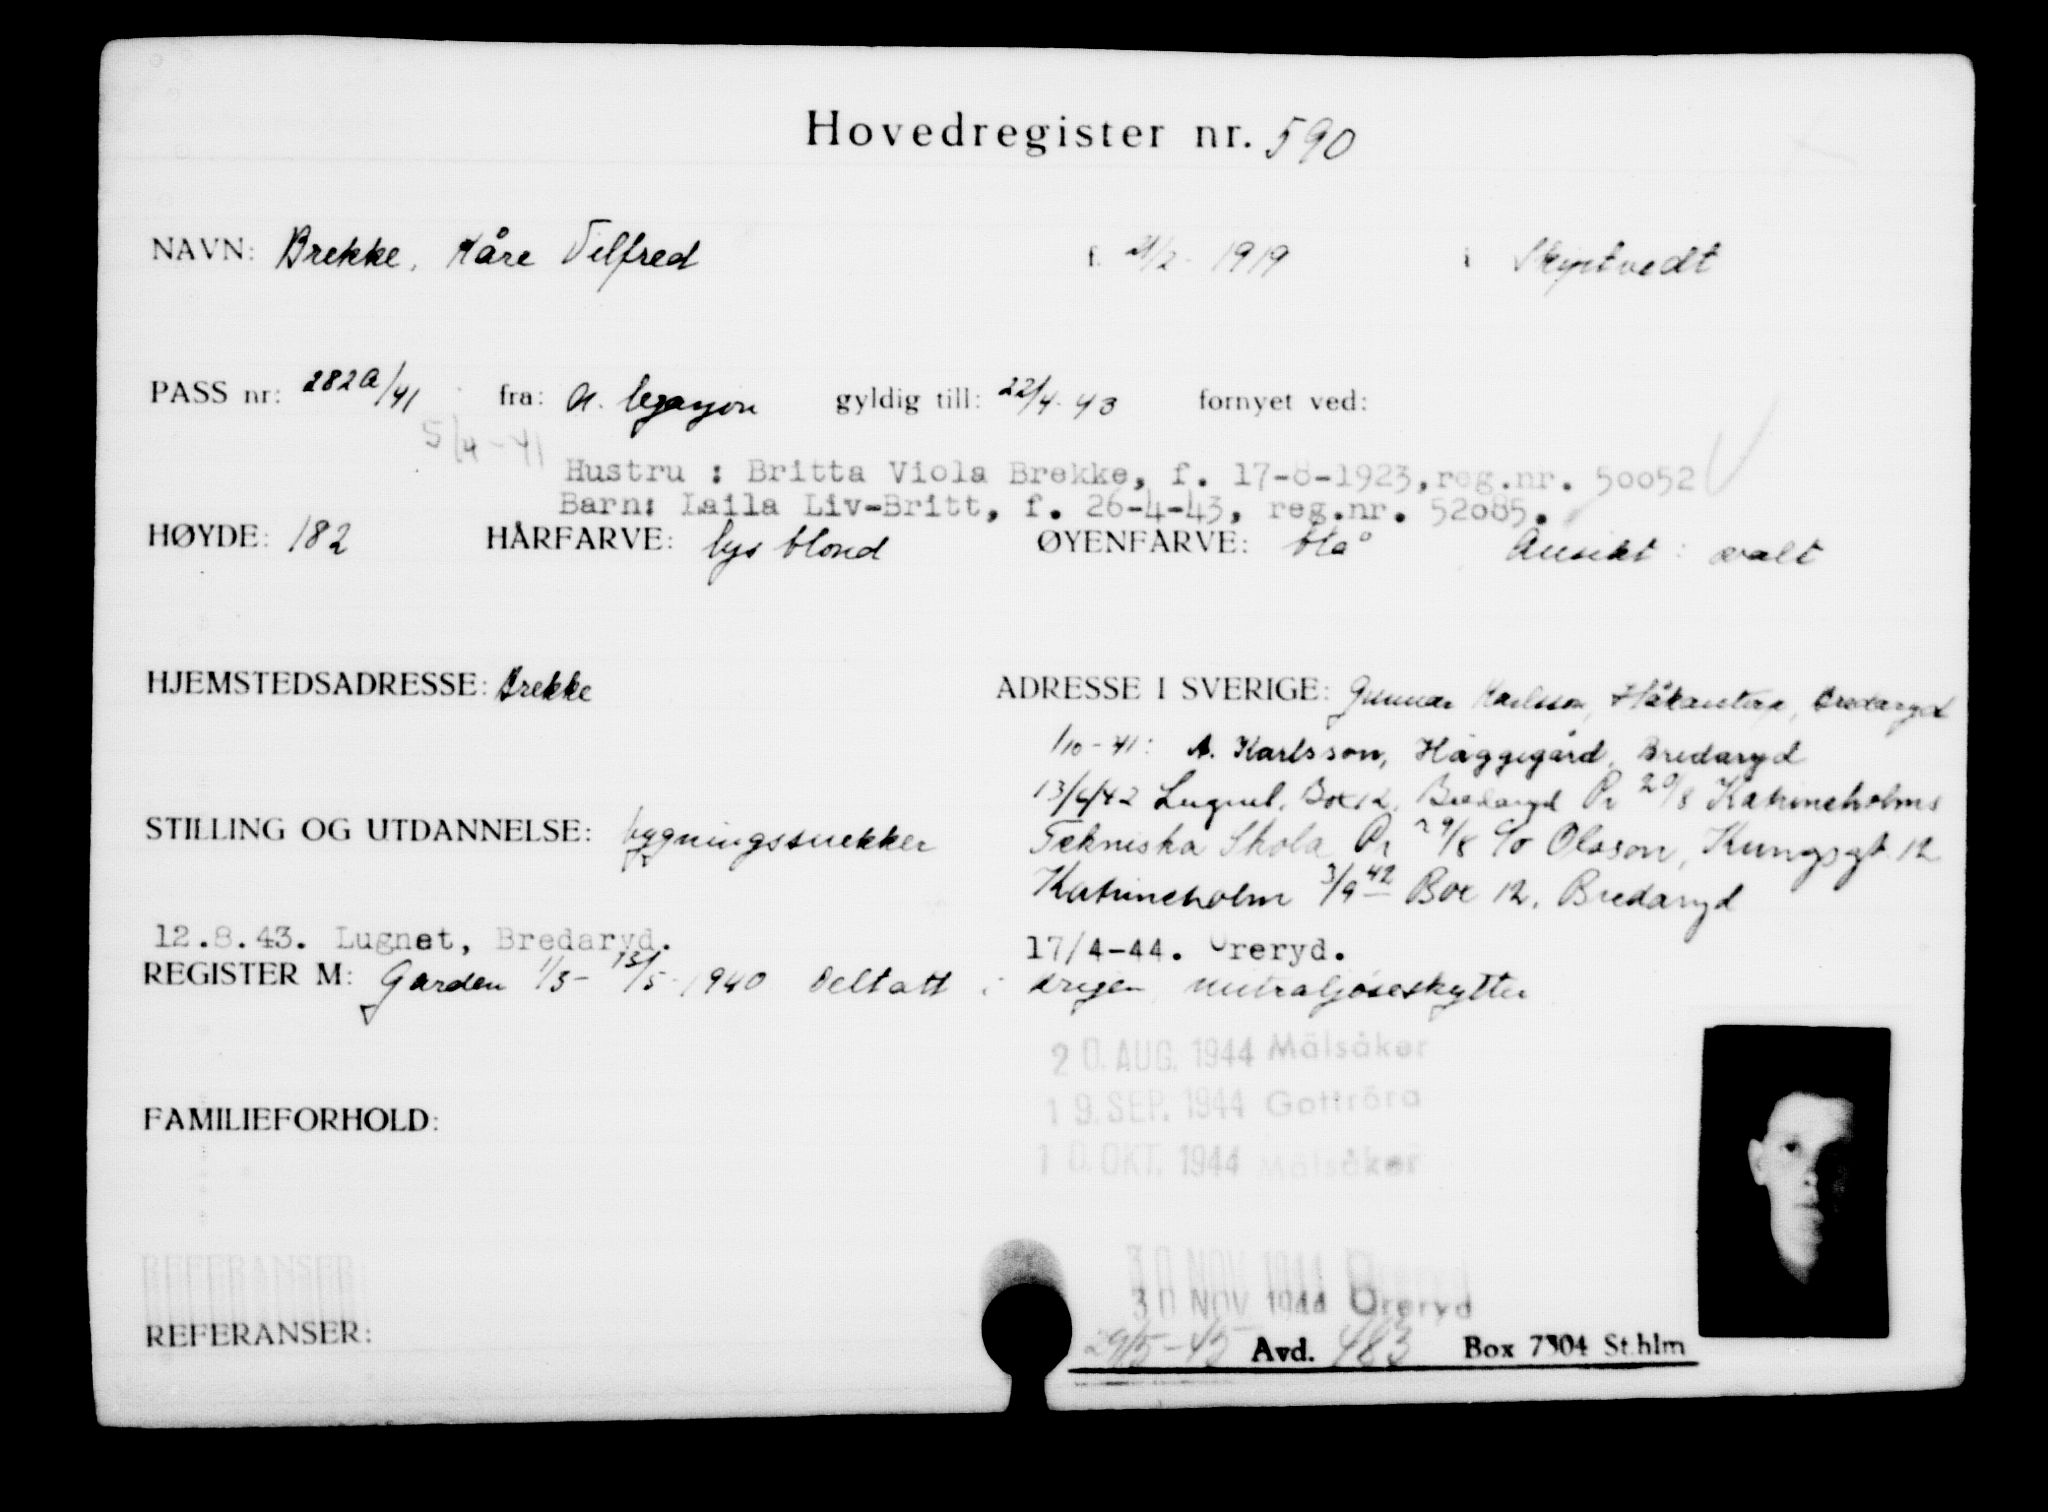 Hovedregister nr. 590
NAVN: Brekke, Kåre Vilfred f. 21/2 - 1919 i Skiptvedt
PASS nr: 282a/41 fra: N. legasjon gyldig till: 22/4-43 fornyet ved:
5/4-41
Hustru : Britta Viola Brekke, f. 17-8-1923, reg.nr. 50052
Barn: Laila Liv-Britt, f. 26-4-43, reg.nr. 52085.
HØYDE: 182 HÅRFARVE: lys blond ØYENFARVE: blå Ansikt: ovalt
HJEMSTEDSADRESSE: Brekke
ADRESSE I SVERIGE: Gunnar Karlsson, Bredaryd
1/10-41: A. Karlsson, Häggegård, Bredaryd
13/6/42 Lugnet, Box 12, Bredaryd Pr 20/8 Katrineholms
STILLING OG UTDANNELSE: bygningssnekker
Tekniska Skola Pr 29/8 c/o Olsson, Kungsgt. 12
Katrineholm 3/9 42 Box 12, Bredaryd
12.8.43. Lugnet, Bredaryd.
17/4-44. Öreryd.
REGISTER M: Garden 1/3 - 13/5 - 1940 Deltatt i krigen mitraljøseskytter
20. AUG. 1944 Målsåker
19. SEP. 1944 Gottröra
10. OKT. 1944 Målsåker
FAMILIEFORHOLD:
30 NOV 1944 Öreryd
30 NOV 1944 Öreryd
REFERANSER
REFERANSER:
29/5-45 Avd. 483 Box 7304 St.hlm